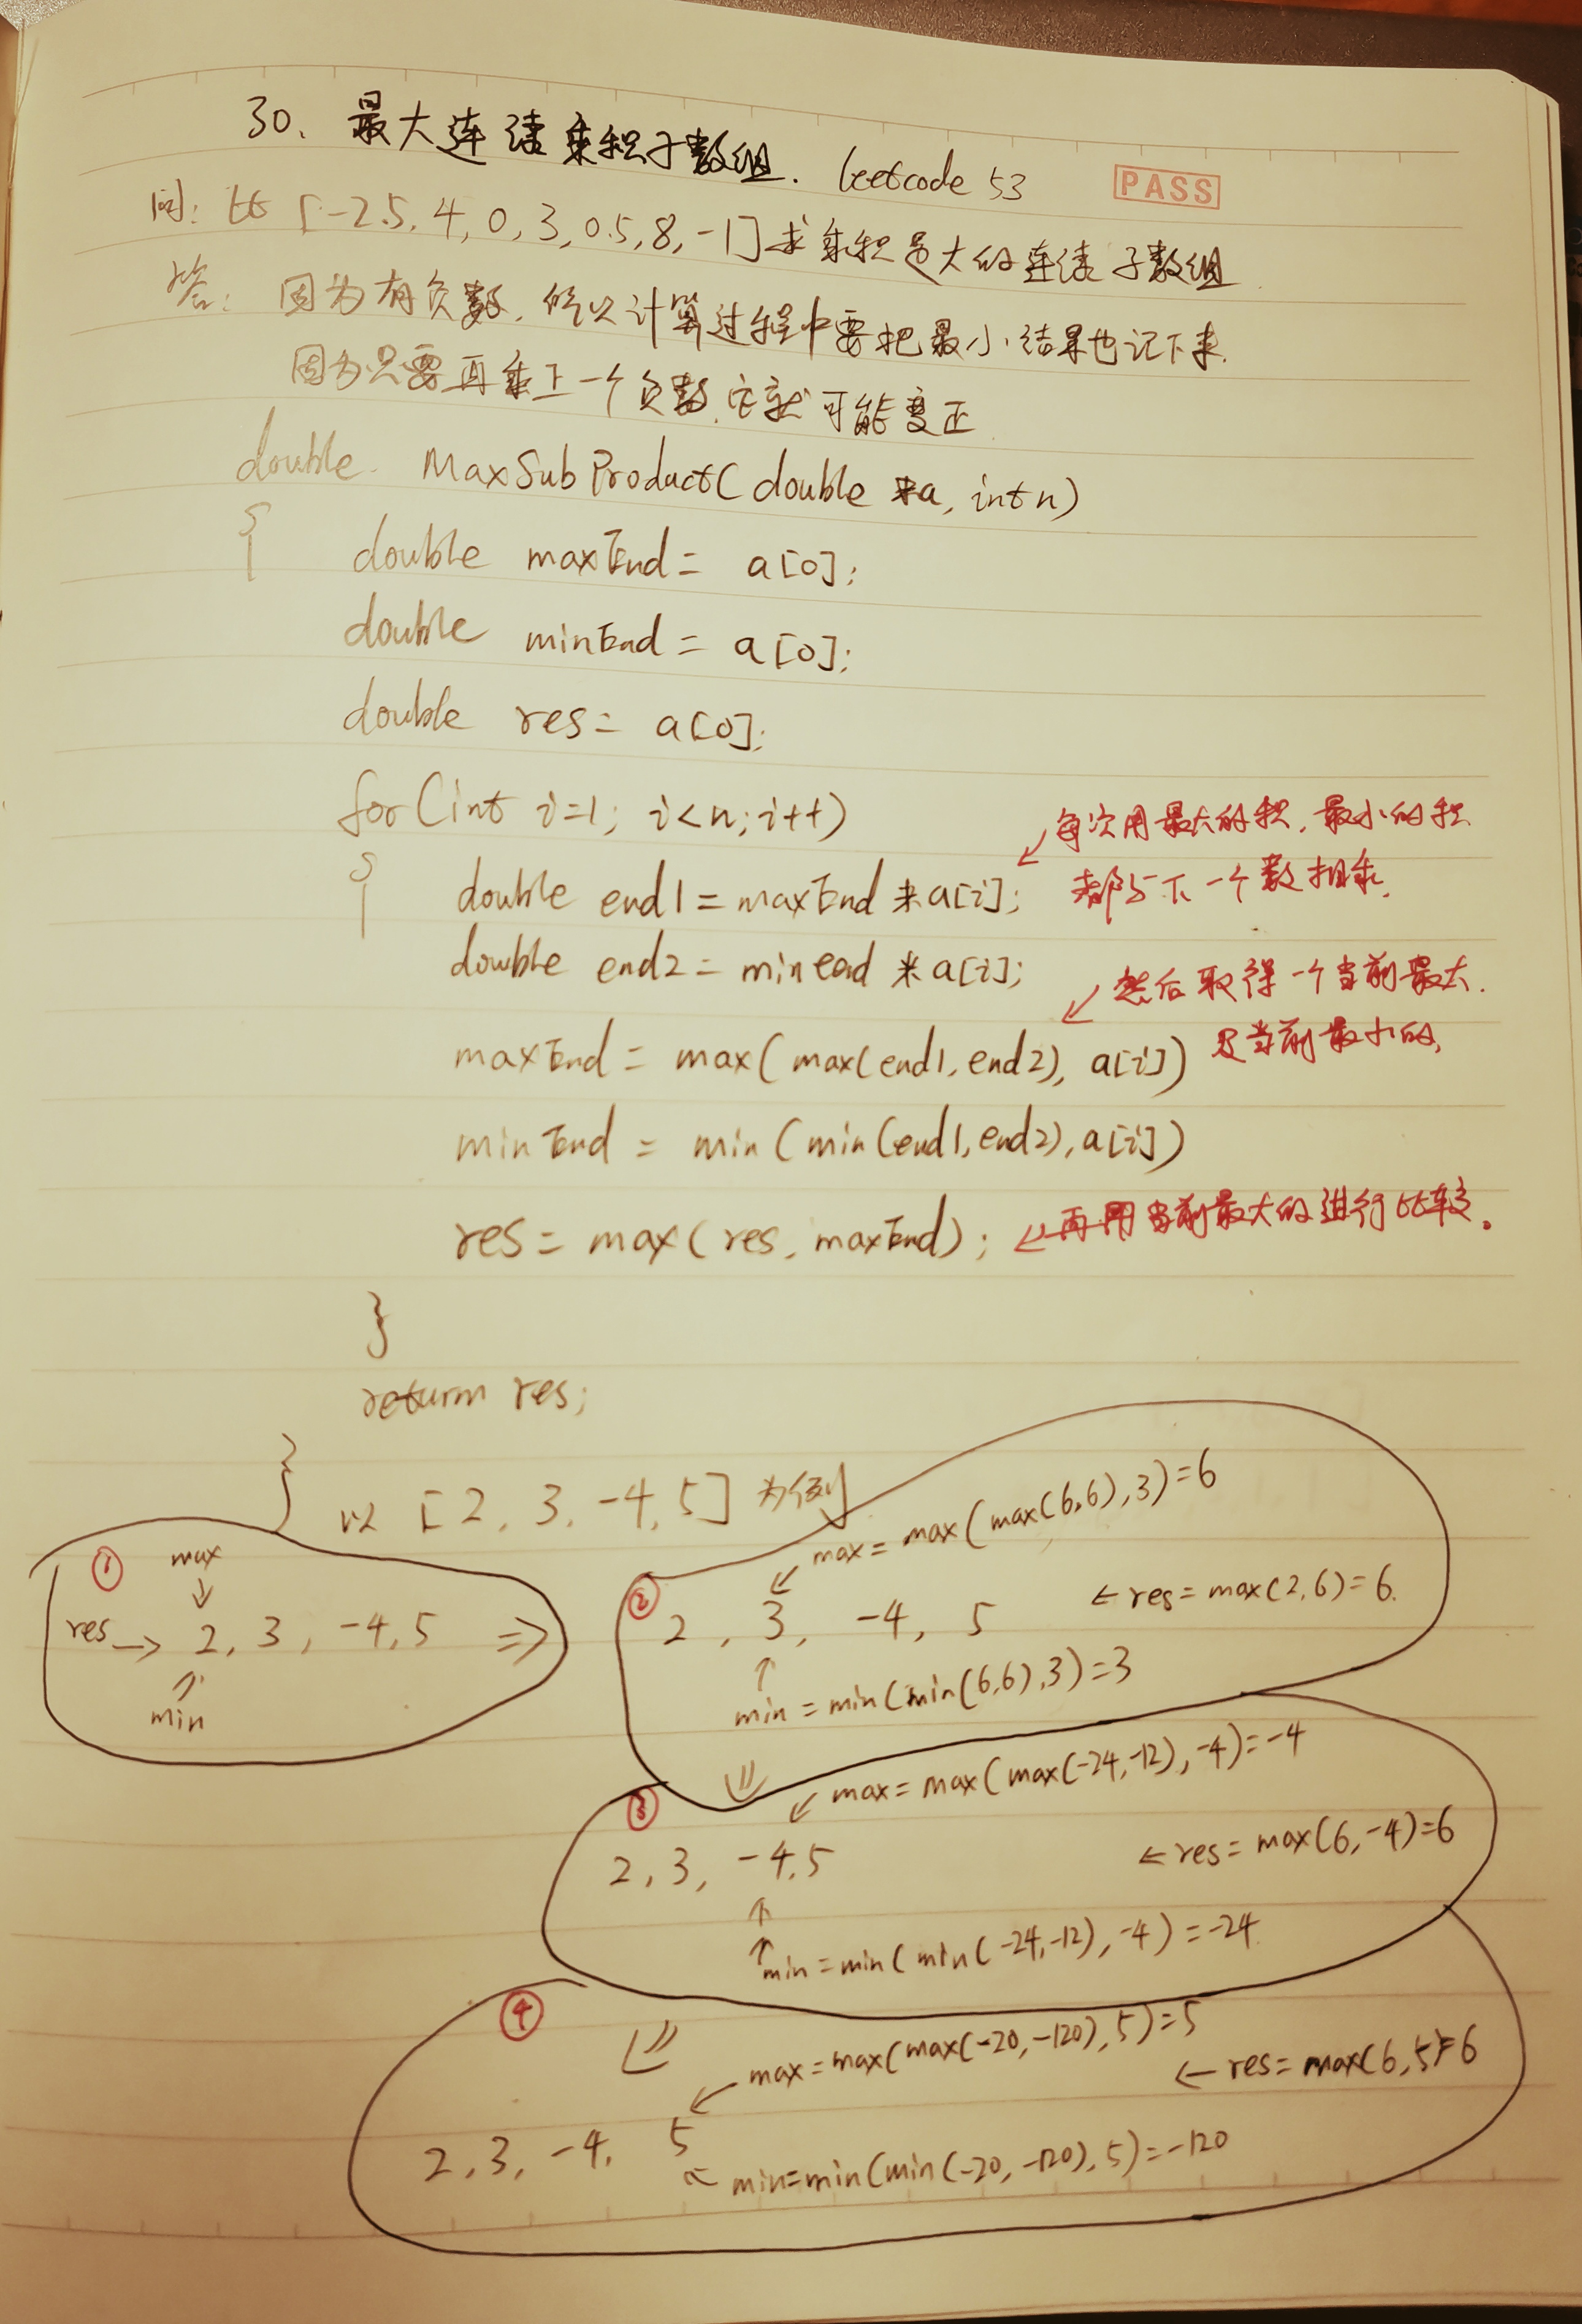 30. 最大连续乘积子数组. leetcode 53 PASS
问: 比 [-2.5, 4, 0, 3, 0.5, 8, -1] 求乘积最大的连续子数组
答: 因为有负数, 所以计算过程中要把最小结果也记下来.
因为只要再乘上一个负数, 它就可能变正
double MaxSubProduct( double *a, int n)
{ double maxEnd = a[0];
double minEnd = a[0];
double res = a[0];
for(int i=1; i<n; i++)
{ double end1 = maxEnd * a[i]; ↙ 每次用最大的积, 最小的积
都与下一个数相乘.
double end2 = minend * a[i];
↙ 然后取得一个当前最大.
maxEnd = max( max(end1, end2), a[i]) 及当前最小的,
minEnd = min (min(end1, end2), a[i])
res = max( res, maxEnd); ← 再用当前最大的进行比较。
}
return res;
}
以 [2, 3, -4, 5] 为例
① max
↓
res → 2, 3, -4, 5 ⇒
↑
min
② ↙ max = max(max(6,6),3)=6
2, 3, -4, 5 ← res = max(2,6)=6.
↑
min = min(min(6,6),3)=3
⇓
③ ↙ max = max(max(-24,-12),-4)=-4
2, 3, -4, 5 ← res = max(6,-4)=6
↑
↑ min = min( min(-24,-12),-4)=-24
④ ⇓
↙ max = max(max(-20,-120),5)=5
← res = max(6,5)=6
2, 3, -4, 5
← min=min(min(-20,-120),5)=-120